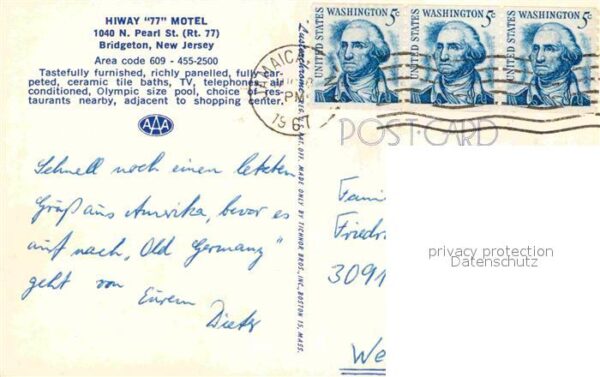 HIWAY "77" MOTEL
1040 N. Pearl St. (Rt. 77)
Bridgeton, New Jersey
Area code 609 - 455-2500
Tastefully furnished, richly panelled, fully car-
peted, ceramic tile baths, TV, telephones, air
conditioned, Olympic size pool, choice of res-
taurants nearby, adjacent to shopping center.
AAA
Schnell noch einen letzten
Gruß aus Amerika, bevor es
auf nach „Old Germany"
geht von
Eurem
Dieter
MADE ONLY BY TICHNOR BROS., INC., BOSTON 15, MASS.
JAMAICA
PM
1967
UNITED STATES WASHINGTON 5c
UNITED STATES WASHINGTON 5c
UNITED STATES WASHINGTON 5c
POST CARD
Fami
Friedr
3091
We
privacy protection
Datenschutz